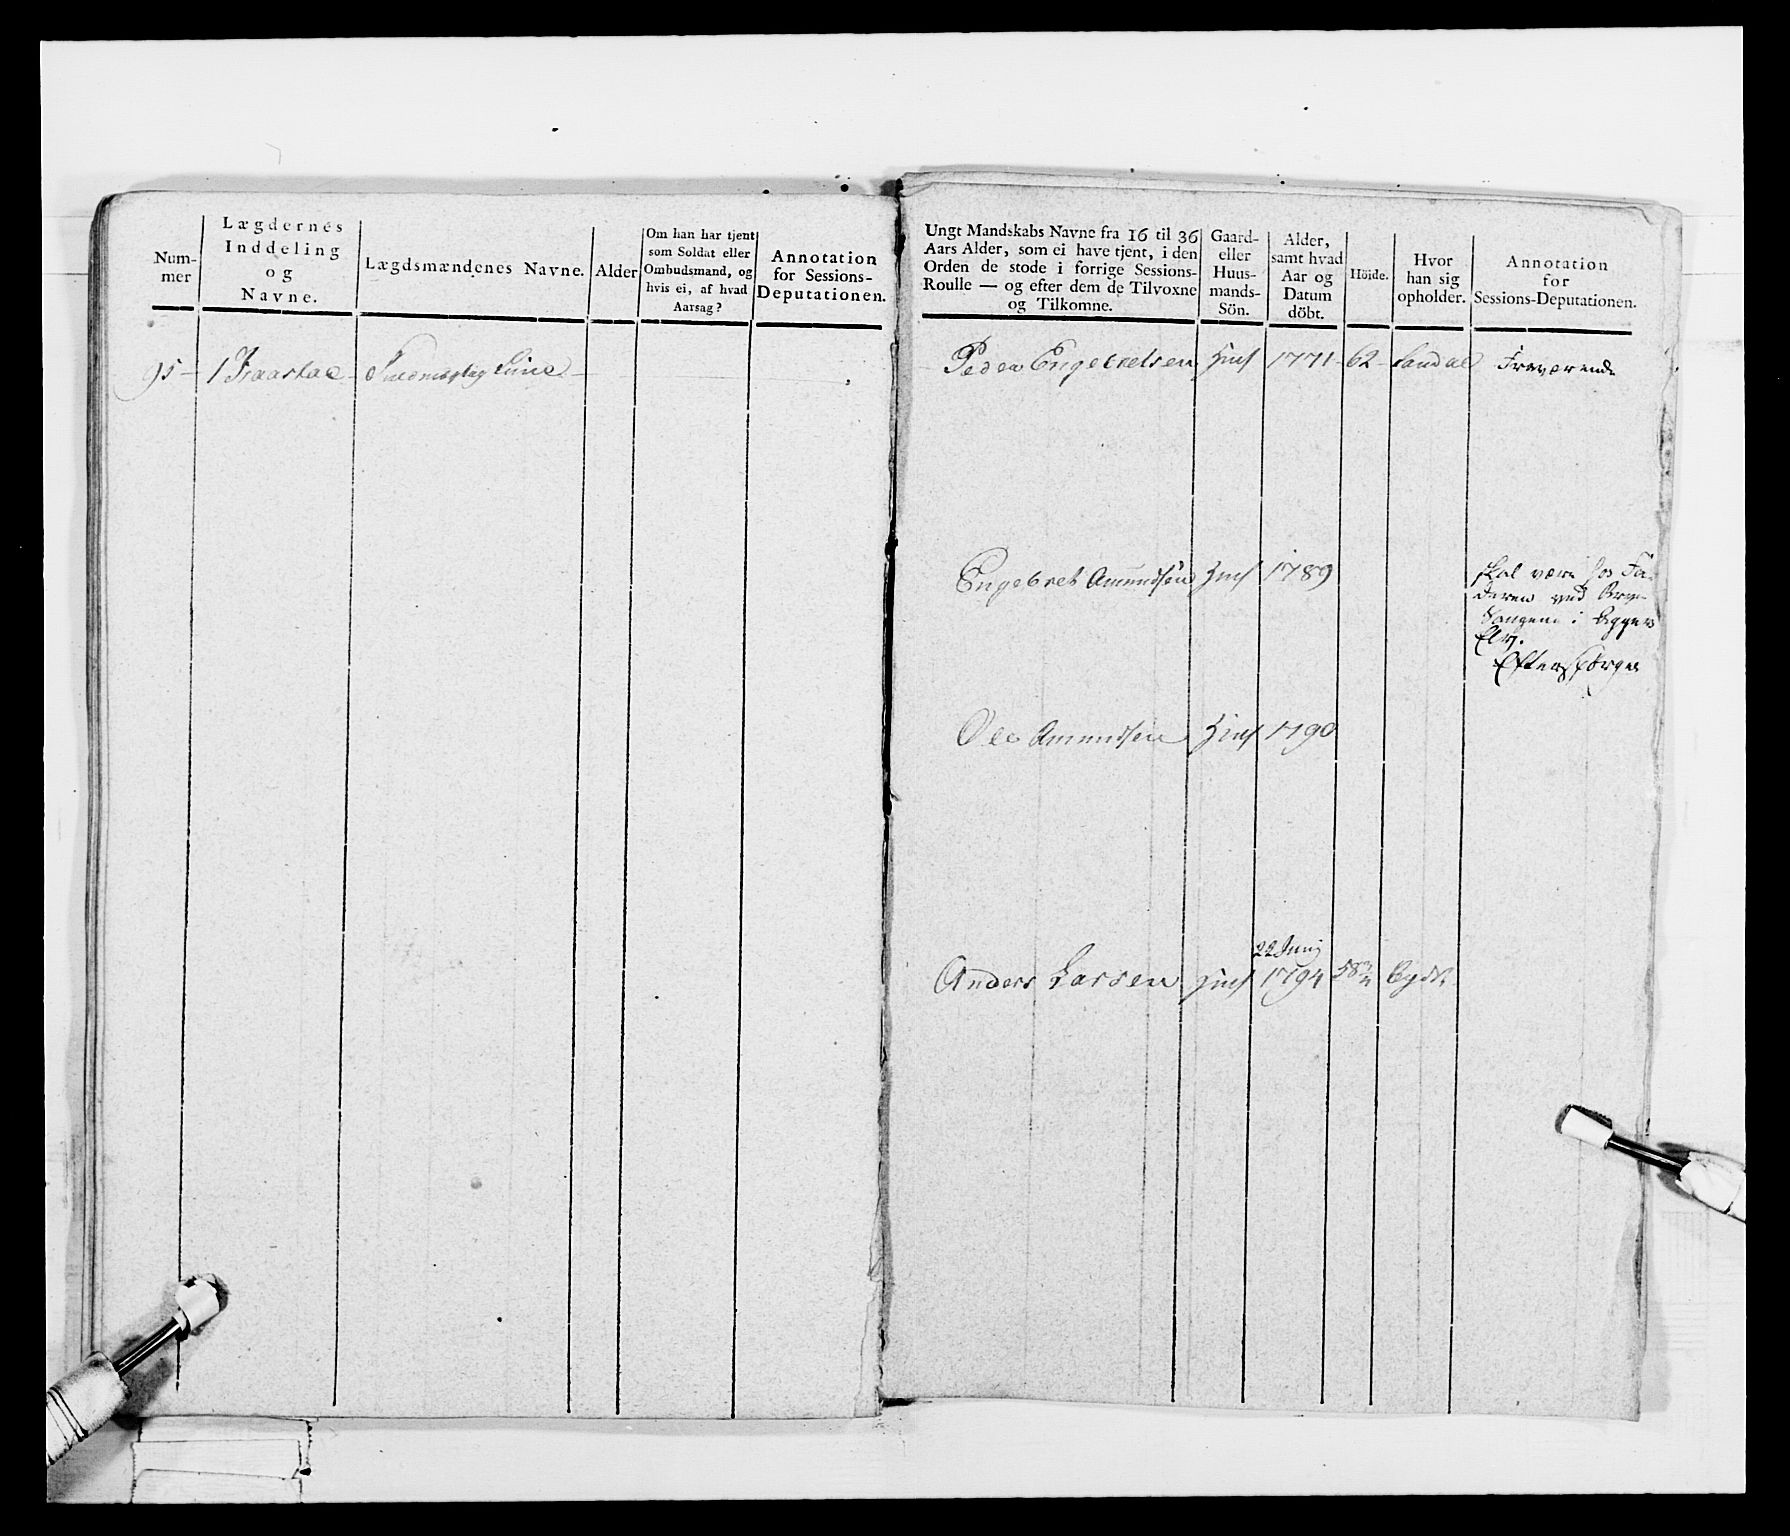 Num-
mer
Lægdernes
Inddeling
og
Navne.
Lægdsmændenes Navne.
Alder
Om han har tjent
som Soldat eller
Ombudsmand, og
hvis ei, af hvad
Aarsag?
Annotation
for Sessions-
Deputationen.
95 1
Ungt Mandskabs Navne fra 16 til 36
Aars Alder, som ei have tjent, i den
Orden de stode i forrige Sessions-
Roulle — og efter dem de Tilvoxne
og Tilkomne.
Gaard-
eller
Huus-
mands-
Sön.
Alder,
samt hvad
Aar og
Datum
döbt.
Höide.
Hvor
han sig
opholder.
Annotation
for
Sessions-Deputationen.
Peder Engebretsen Huus 1771 62 Fraværende
Engebret Amundsen Huus 1789
skal være hos Fa-
deren ved
i Agger
Elv.
Efterspørges
Ole Amundsen Huus 1790
22 Junij
Anders Larsen Huus 1794 58 Bygd.